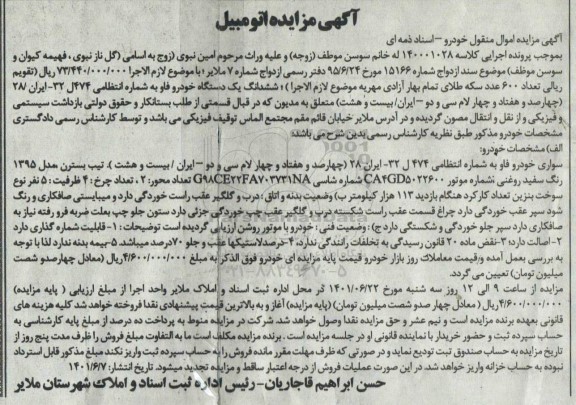 آگهی مزایده اتومبیل
آگهی مزایده اموال منقول خودرو – اسناد ذمه ای
بموجب پرونده اجرایی کلاسه ۱۴۰۰۰۱۰۲۸ له خانم سوسن موظف (زوجه) و علیه وراث مرحوم امین نبوی (زوج به اسامی (گل ناز نبوی ، فهیمه کیوان و
سوسن موظف) موضوع سند ازدواج شماره ۱۵۱۶۶ مورخ ۹۵/۶/۲۴ دفتر رسمی ازدواج شماره ۷ ملایر ؛ با موضوع لازم الاجرا ۷۳/۴۴۰/۰۰۰/۰۰۰ ریال (تقویم
ریالی تعداد ۶۰۰ عدد سکه طلای تمام بهار آزادی مهریه موضوع لازم الاجرا) ؛ ششدانگ یک دستگاه خودرو فاو به شماره انتظامی ۴۷۴ل ۳۲- ایران /۲۸
(چهارصد و هفتاد و چهار لام سی و دو – ایران/بیست و هشت) متعلق به مدیون که در قبال قسمتی از طلب بستانکار و حقوق دولتی بازداشت سیستمی
و فیزیکی و از نقل و انتقال مصون گردیده و در آدرس ملایر خیابان قائم مقم مجتمع الماس توقیف فیزیکی می باشد و توسط کارشناس رسمی دادگستری
مشخصات خودرو مذکور طبق نظریه کارشناس رسمی بدین شرح می باشد:
الف) مشخصات خودرو:
سواری خودرو فاو به شماره انتظامی ۴۷۴ ل ۳۲- ایران ۲۸ (چهارصد و هفتاد و چهار لام سی و دو – ایران / بیست و هشت ). تیپ بسترن مدل ۱۳۹۵
رنگ سفید روغنی :شماره موتور CA۴GD۵۰۲۲۶۰۰ شماره شاسی G۹۸CE۲۲FA۷۰۳۷۳۱NA تعداد محور: ۲ ، تعداد چرخ : ۴ ظرفیت : ۵ نفر نوع
سوخت بنزین تعداد کار کرد هنگام بازدید ۱۱۳ هزار کیلومتر ب) وضعیت بدنه و اتاق : درب و گلگیر عقب راست خوردگی دارد و میبایستی صافکاری و رنگ
شود سپر عقب خوردگی دارد چراغ قسمت عقب راست شکسته درب و گلگیر عقب چپ خوردگی جزئی دارد ستون جلو چپ بعلت ضربه فرو رفته نیاز به
صافکاری دارد سپر جلو خوردگی و شکستگی دارد ج) : وضعیت فنی : خودرو با موتور روشن ارزیابی گردیده است توضیحات : ۱- قابلیت شماره گذاری دارد
۲-اصالت دارد؛ ۳-نقض ماده ۲۰ قانون رسیدگی به تخلفات رانندگی ندارد، ۴-درصد لاستیکها عقب و جلو ۷۰ درصد میباشد ۵-بیمه بدنه ندارد لذا با توجه
به بررسی بعمل آمده و قیمت معاملاک روز بازار خودرو قیمت پایه مزایده ای خودرو فوق الذکر به مبلغ ۴/۶۰۰/۰۰۰/۰۰۰ریال (معادل چهارصدو شصت
میلیون تومان) تعیین می گردد.
مزایده از ساعت ۹ الی ۱۲ روز سه شنبه مورخ ۱۴۰۱/۰۶/۲۲ در محل اداره ثبت اسناد و املاک ملایر واحد اجرا از مبلغ ارزیابی ( پایه مزایده)
۴/۶۰۰/۰۰۰/۰۰۰ریال ( معادل چهار صدو شصت میلیون تومان) (پایه مزایده) آغاز و به بالاترین قیمت پیشنهادی نقدا فروخته خواهد شد کلیه هزینه های
قانونی بعهده برنده مزایده است و نیم عشر و حق مزایده نقدا وصول خواهد شد. شرکت در مزایده منوط به پرداخت ده درصد از مبلغ پایه کارشناسی به
حساب سپرده ثبت و حضور خریدار یا نماینده قانونی او در جلسه مزایده است . برنده مزایده مکلف است ما به التفاوت مبلغ فروش را ظرف مدت پنج روز از
تاریخ مزایده به حساب صندوق ثبت تودیع نماید و در صورتی که ظرف مهلت مقرر مانده فروش را به حساب سپرده ثبت واریز نکند مبلغ مذکور قابل استرداد
نبوده به حساب خزانه واریز خواهد شد. در این صورت عملیات فروش از درجه اعتبار ساقط و مزایده تجدید میشود. تاریخ انتشار: ۱۴۰۱/۶/۷
حسن ابراهیم قاجاریان - رئیس اداره ثبت اسناد و املاک شهرستان ملایر